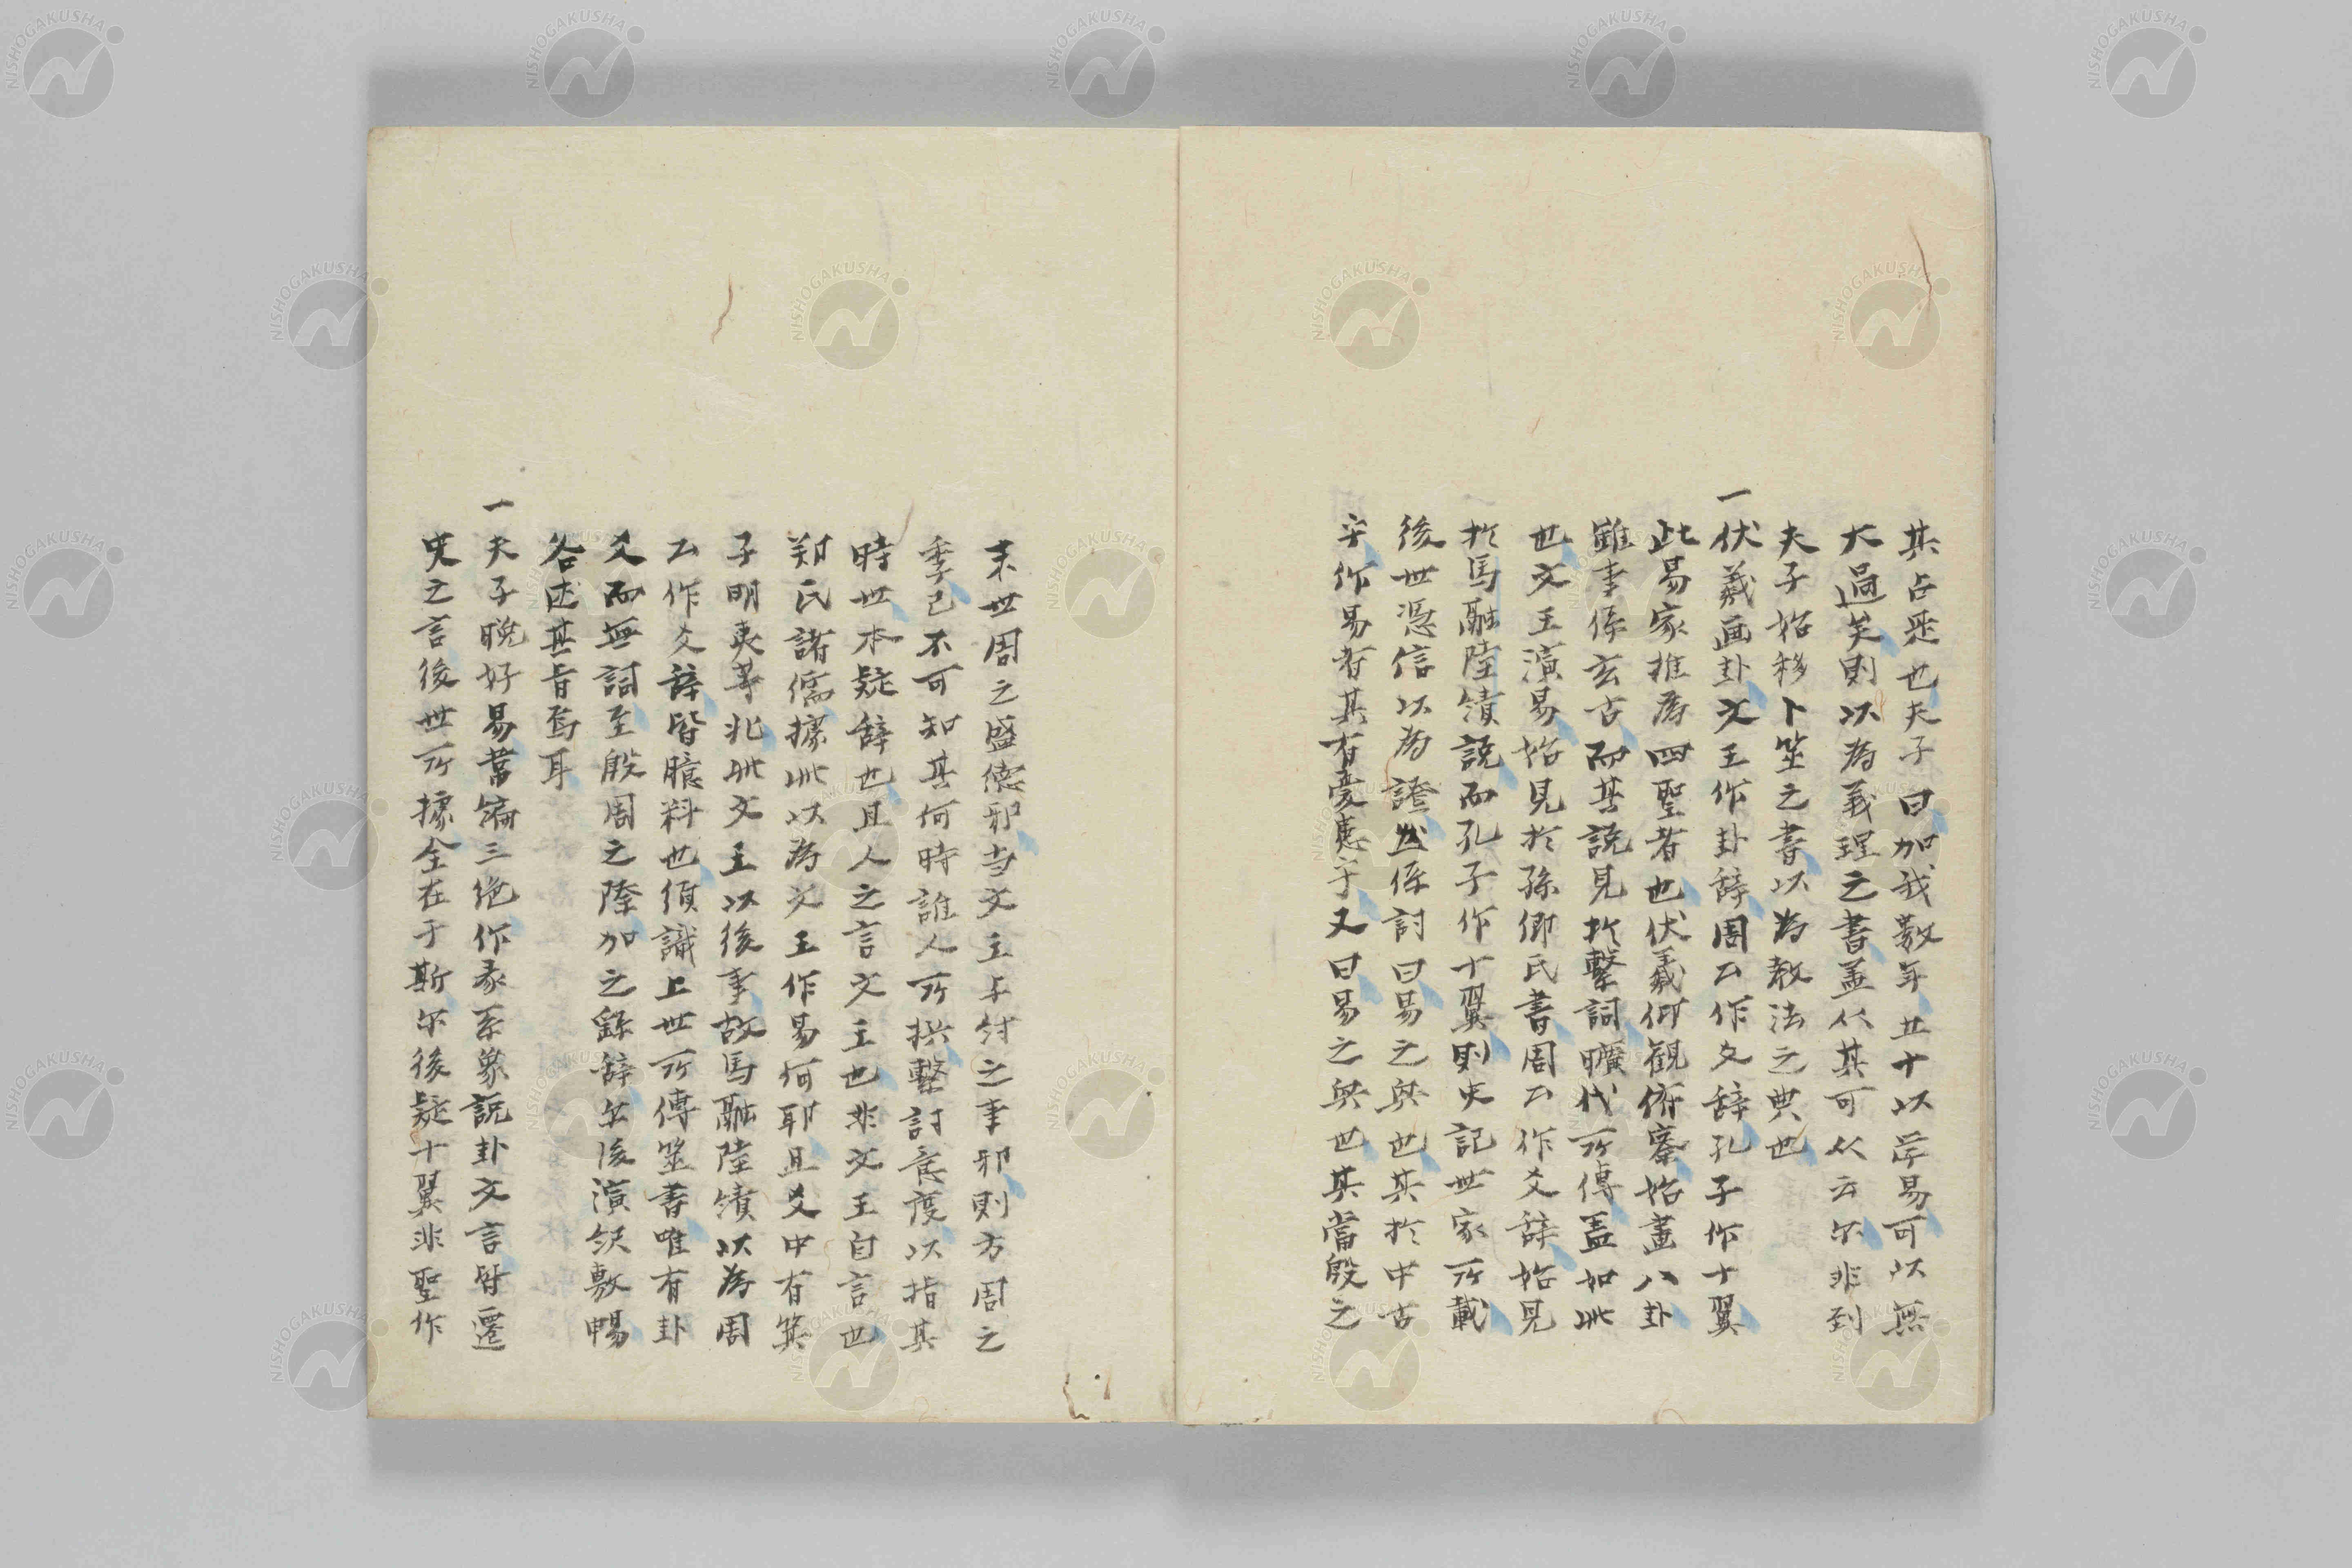 其占是也夫子曰加我数年五十以学易可以無
大過矣則以為義理之書盖从其可从云尓非到
夫子始移卜筮之書以為教法之典也
一伏羲画卦文王作卦辞周公作爻辞孔子作十翼
此易家推為四聖者也伏羲仰観俯察始畫八卦
雖事係玄古而其説見於繫詞曠代所傳盖如此
也文王演易始見於孫卿氏書周公作爻辞始見
於馬融陸績説而孔子作十翼則史記世家所載
後世憑信以為證然係詞曰易之興也其於中古
乎作易者其有憂患乎又曰易之興也其當殷之
末世周之盛德邪当文王与紂之事邪則方周之
季已不可知其何時誰人所撰繫討意度以指其
時世本疑辞也且人之言文王也非文王自言也
鄭氏諸儒據此以為文王作易何耶且爻中有箕
子明夷等非文王以後事故馬融陸績以為周
公作爻辞皆臆料也須識上世所傳筮書唯有卦
爻而無詞至殷周之際加之繇辞尓後演繹敷暢
各述其旨焉耳
一夫子晩好易葦編三絶作彖系象説卦文言皆遷
史之言後世所據全在于斯尓後疑十翼非聖作